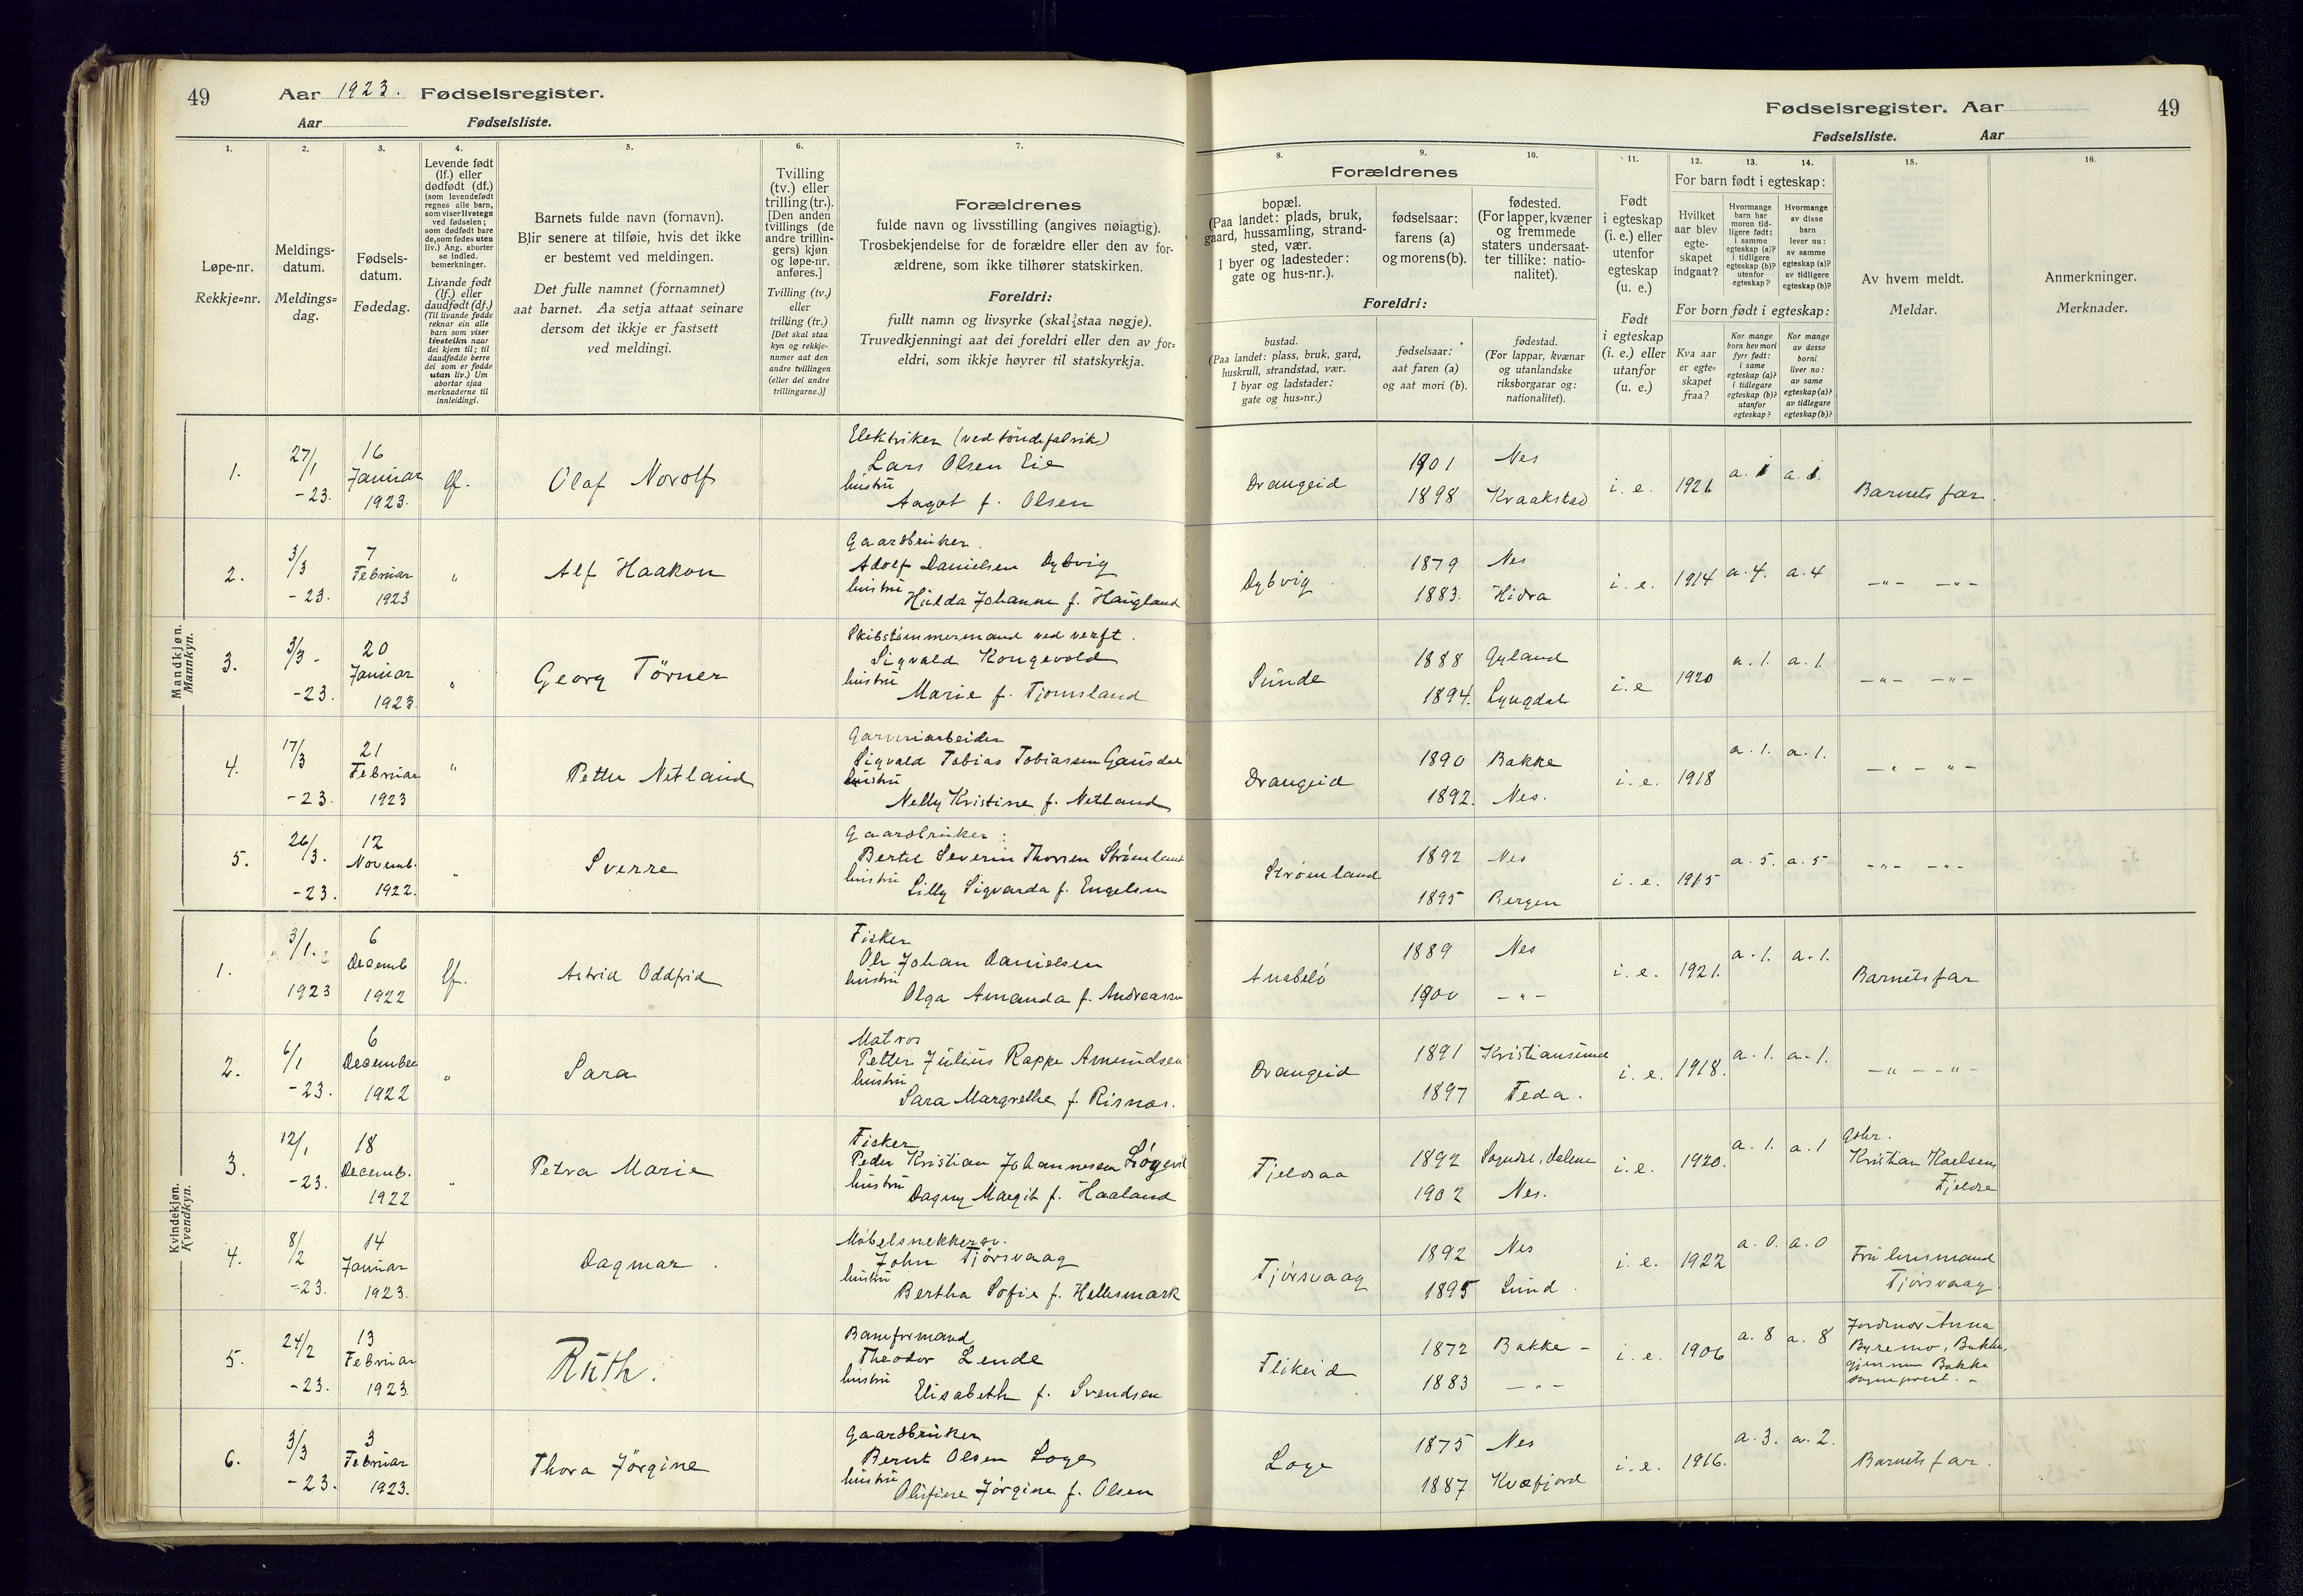 49
Aar 1923. Fødselsregister.
Aar Fødselsliste.
1. 2. 3. 4. 5. 6. 7.
Løpe-nr.
Rekkje=nr.
Meldings-
datum.
Meldings=
dag.
Fødsels-
datum.
Fødedag.
Levende født
(lf.) eller
dødfødt (df.)
(som levendefødt
regnes alle barn,
som viser livstegn
ved fødselen;
som dødfødt bare
de, som fødes uten
liv.) Ang. aborter
se indled.
bemerkninger.
Livande født
(lf.) eller
daudfødt (df.)
(Til livande fødde
reknar ein alle
barn som viser
livsteikn naar
dei kjem til; til
daudfødde berre
dei som er fødde
utan liv.) Um
abortar sjaa
merknaderne til
innleidingi.
Barnets fulde navn (fornavn).
Blir senere at tilføie, hvis det ikke
er bestemt ved meldingen.
Det fulle namnet (fornamnet)
aat barnet. Aa setja attaat seinare
dersom det ikkje er fastsett
ved meldingi.
Tvilling
(tv.) eller
trilling (tr.).
[Den anden
tvillings (de
andre trillin-
gers) kjøn
og løpe-nr.
anføres.]
Tvilling (tv.)
eller
trilling (tr.)
[Det skal staa
kyn og rekkje-
numer aat den
andre tvillingen
(eller dei andre
trillingarne.)]
Forældrenes
fulde navn og livsstilling (angives nøiagtig).
Trosbekjendelse for de forældre eller den av for-
ældrene, som ikke tilhører statskirken.
Foreldri:
fullt namn og livsyrke (skal staa nøgje).
Truvedkjenningi aat dei foreldri eller den av for=
eldri, som ikkje høyrer til statskyrkja.
Mandkjøn.
Mannkyn.
1. 27/1 -23. 16 Januar 1923. lf. Olaf Norolf
Elektriker (ved tøndefabrik)
Lars Olsen Eie
hustru
Aagot f. Olsen
2. 3/3 -23. 7 Februar 1923 " Alf Haakon
Gaardbruker.
Adolf Danielsen Dybvig
hustru
Hulda Johanne f. Haugland
3. 3/3 - -23. 20 Januar 1923. " Georg Törner
Skibstømmermand ved verft.
Sigvald Kongevold
hustru
Marie f. Tjomsland
4. 17/3 -23. 21 Februar 1923 " Petter Netland
Garveriarbeider
Sigvald Tobias Tobiassen Gausdal
hustru
Nelly Kristine f. Netland
5. 26/3. -23. 12 Novemb. 1922. " Sverre
Gaardbruker:
Bertel Severin Thorsen Strømland
hustru
Lilly Sigvarda f. Engelsen
Kvindekjøn.
Kvendkyn.
1. 3/1. 1923 6 Decemb 1922 lf. Astrid Oddfrid
Fisker
Ole Johan Danielsen
hustru
Olga Amanda f. Andreassen
2. 6/1 -23. 6 December 1922 " Sara
Matros
Petter Julius Rappe Amundsen
hustru
Sara Margrethe f. Risnes.
3. 12/1 -23. 18 Decemb. 1922 " Petra Marie
Fisker
Peder Kristian Johannesen
hustru
Dagny Margit f. Haaland
4. 8/2 -23. 14 Januar 1923. Dagmar.
Møbelsnekkersv.
John Tjørsvaag
hustru
Bertha Sofie f. Hellesmark
5. 24/2 -23. 13 Februar 1923. Ruth.
Baneformand
Theodor Lende
hustru
Elisabeth f. Svendsen
6. 3/3 -23. 3 Februar 1923. Thora Jörgine
Gaardbruker
Bernt Olsen Loge
hustru
Olufine Jörgine f. Olsen
Fødselsregister. Aar 49
Fødselsliste. Aar
8. 9. 10. 11. 12. 13. 14. 15. 16.
Forældrenes
bopæl.
(Paa landet: plads, bruk,
gaard, hussamling, strand-
sted, vær.
I byer og ladesteder:
gate og hus-nr.).
fødselsaar:
farens (a)
og morens (b).
fødested.
(For lapper, kvæner
og fremmede
staters undersaat-
ter tillike: natio-
nalitet).
Foreldri:
bustad.
(Paa landet: plass, bruk, gard,
huskrull, strandstad, vær.
I byar og ladstader:
gate og hus=nr.)
fødselsaar:
aat faren (a)
og aat mori (b).
fødestad.
(For lappar, kvænar
og utanlandske
riksborgarar og:
nationalitet).
Født
i egteskap
(i. e.) eller
utenfor
egteskap
(u. e.)
Født
i egteskap
(i. e.) eller
utanfor
(u. e.)
For barn født i egteskap:
Hvilket
aar blev
egte-
skapet
indgaat?
Hvormange
barn har
moren tid-
ligere født:
i samme
egteskap (a)?
i tidligere
egteskap (b)?
utenfor
egteskap?
Hvormange
av disse
barn
lever nu:
av samme
egteskap (a)?
av tidligere
egteskap (b)?
For born født i egteskap:
Kva aar
er egte=
skapet
fraa?
Kor mange
born hev mori
fyrr født:
i same
egteskap (a)?
i tidlegare
egteskap (b)?
utanfor
egteskap?
Kor mange
av desse
borni
liver no:
av same
egteskap (a)?
av tidlegare
egteskap (b)?
Av hvem meldt.
Meldar.
Anmerkninger.
Merknader.
Drangeid 1901 Nes
1898 Kraakstad i. e. 1921 a. 1 a. 1. Barnets far.
Dybvig. 1879 Nes
1883. Hidra i. e. 1914 a. 4. a. 4 -"- -"-
Sunde 1888 Gyland
1894. Lyngdal i. e 1920 a. 1. a. 1. -"- -"-
Drangeid 1890 Bakke
1892. Nes. i. e. 1918 a. 1. a. 1. -"- "-
Strømland 1892 Nes
1895 Bergen i. e. 1915 a. 5. a. 5 -"- -"-
Anabelø 1889 Nes
1900 -"- i. e. 1921. a. 1. a. 1. Barnets far
Drangeid 1891 Kristiansund
1897 Feda. i. e. 1918. a. 1. a. 1. -"- -"-
Fjeldsaa 1892 Sogndal, Dalene
1902 Nes. i. e. 1920. a. 1. a. 1
Gbr.
Kristian Kaelsen
Tjørsvaag 1892 Nes
1895 Lund. i. e. 1922 a. 0. a. 0
Fru husmand
Tjørsvaag.
Flikeid 1872 Bakke -
1883 -"- i. e. 1906 a. 8 a. 8
Jordmor Anna
Byremo, Bakke,
gjennem Bakke
sogneprest. -
Loge 1875 Nes
1887 Kvæfjord i. e. 1916. a. 3. a. 2. Barnets far.